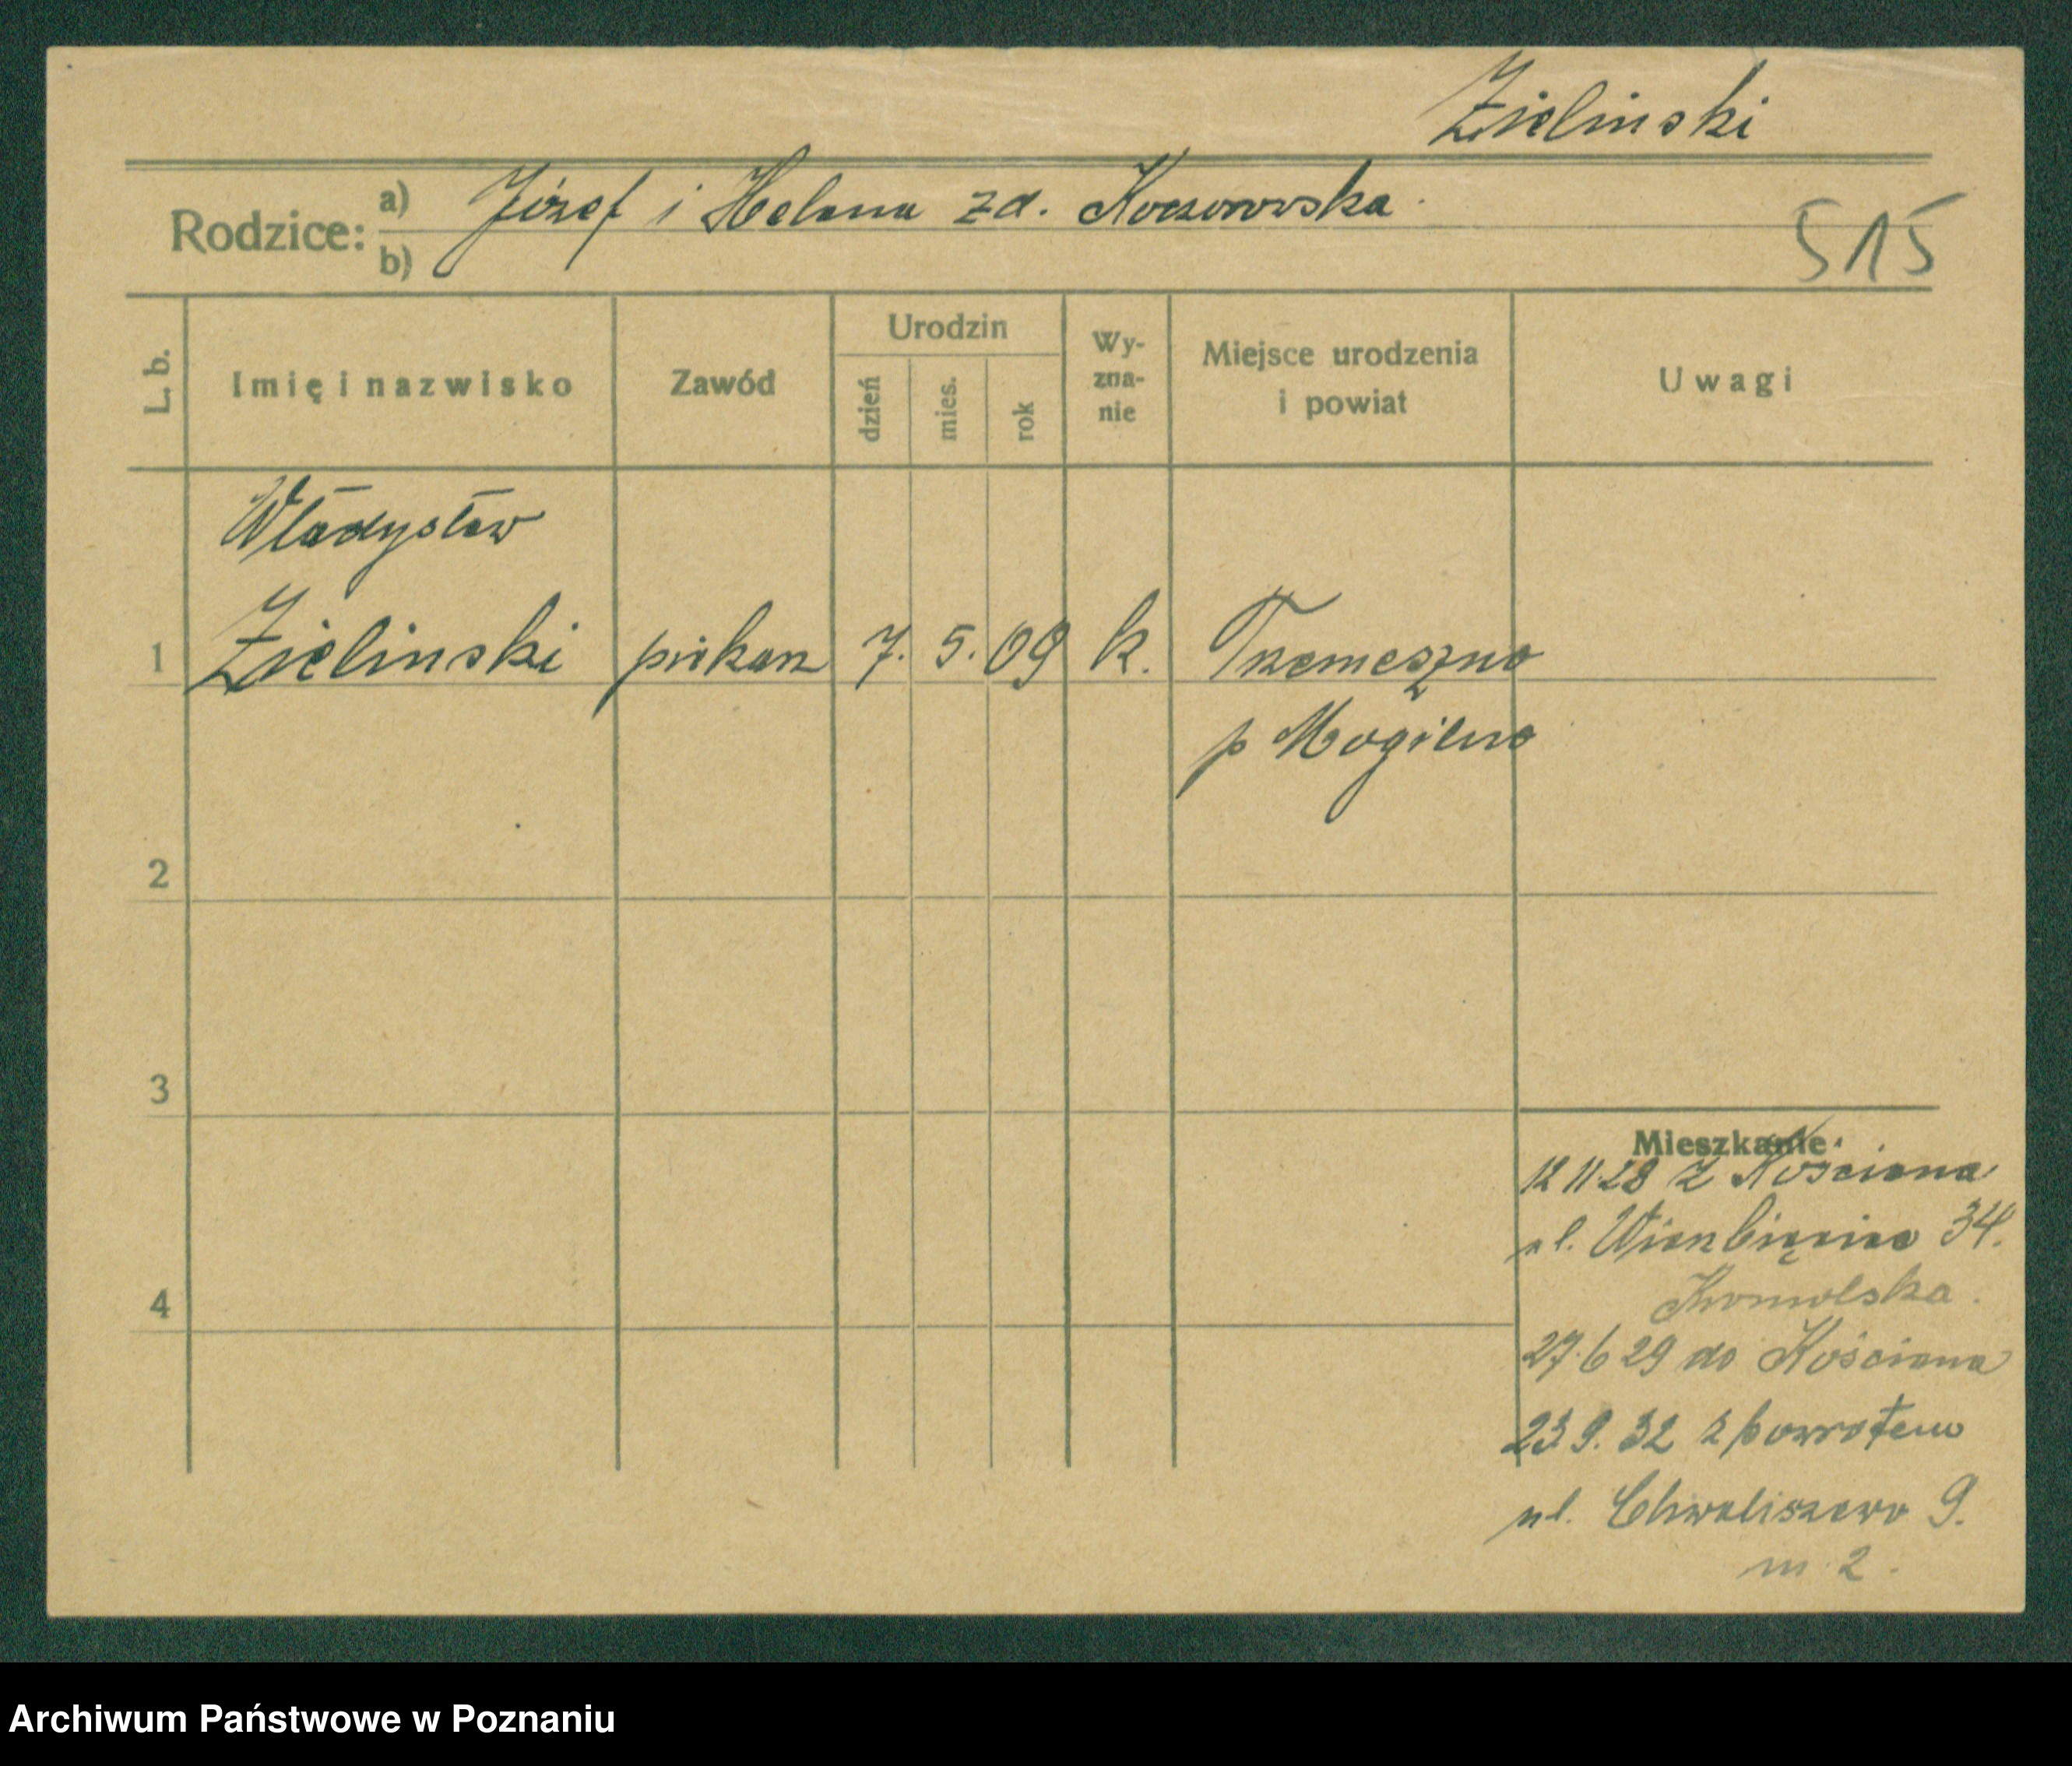 Zielinski
Rodzice: a) Józef i Helena zd. Koczorowska.
b)
515
L. b. Imię i nazwisko Zawód Urodzin dzień mies. rok Wy-zna-nie Miejsce urodzenia i powiat Uwagi
Władysław
1 Zielinski piekarz 7. 5. 09 k. Trzemeszno
p Mogilno
2
3
Mieszkanie:
12 11.28 z Kościana
ul. Wierzbięcice 34.
4
27.6 29 do Kościana
23 9. 32 z powrotem
ul. Chwaliszewo 9.
m 2.
Archiwum Państwowe w Poznaniu